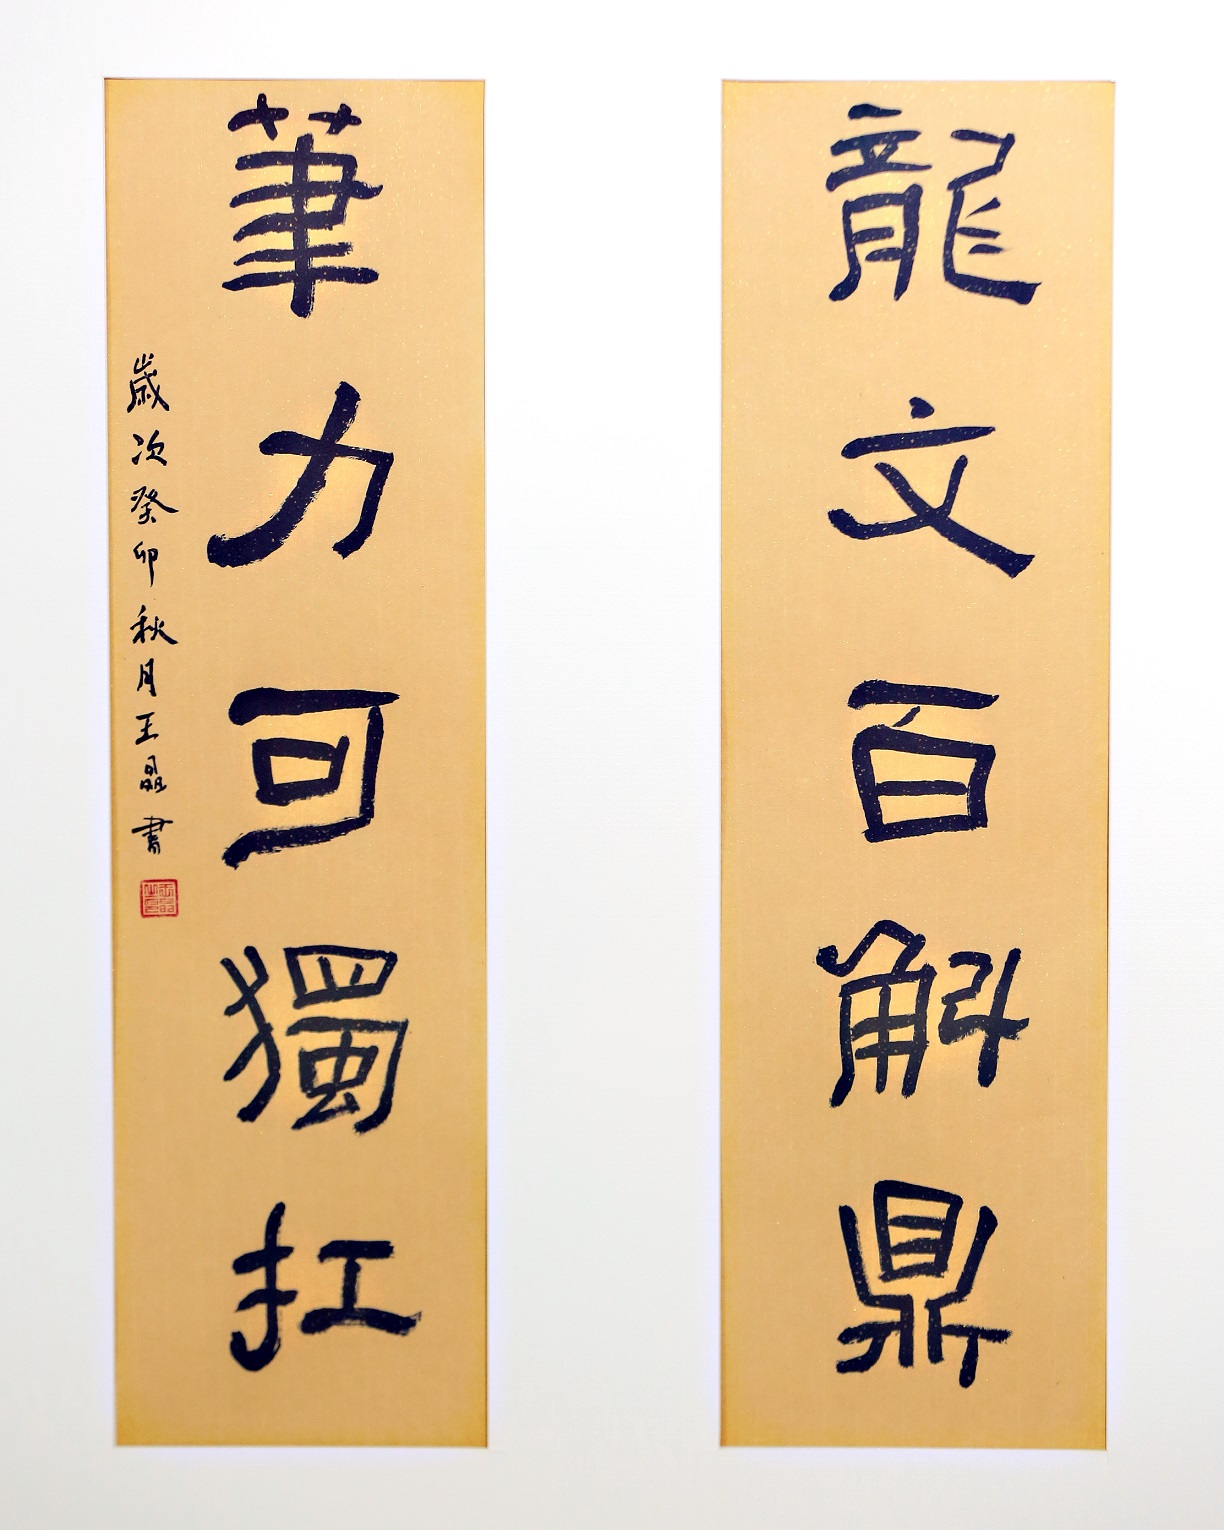 龍文百斛鼎
筆力可獨扛
歲次癸卯秋月王晶書